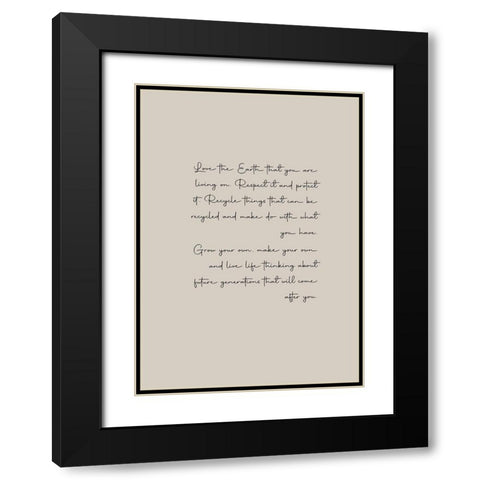 Love the Earth that you are
living on. Respect it and protect
it. Recycle things that can be
recycled and make do with what
you have.
Grow your own, make your own
and live life thinking about
future generations that will come
after you